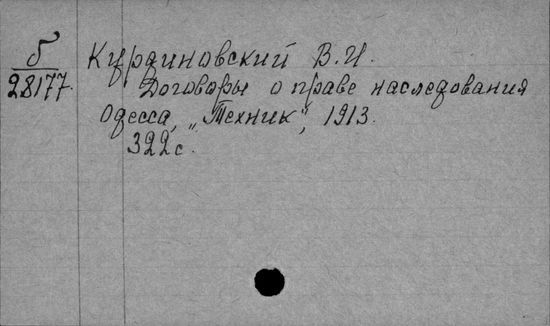 Б
28177.
Курдиновский В.И.
Договоры о праве наследования
Одесса, „Техник", 1913.
322с.